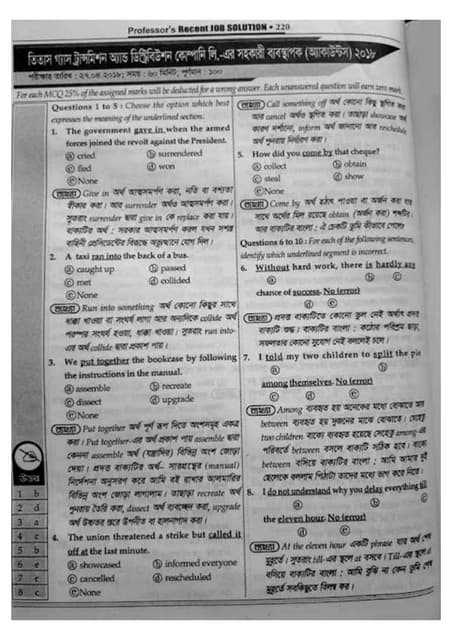 Professor's Recent JOB SOLUTION • 220
তিতাস গ্যাস ট্রান্সমিশন অ্যান্ড ডিস্ট্রিবিউশন কোম্পানি লি.-এর সহকারী ব্যবস্থাপক (অ্যাকাউন্টস) ২০১৮
পরীক্ষার তারিখ : ২৭.০৪.২০১৮; সময় : ৬০ মিনিট; পূর্ণমান : ১০০
For each MCQ 25% of the assigned marks will be deducted for a wrong answer. Each unanswered question will earn zero mark.
Questions 1 to 5 : Choose the option which best
expresses the meaning of the underlined section.
1. The government gave in when the armed
forces joined the revolt against the President.
ⓐ cried ⓑ surrendered
ⓒ fled ⓓ won
ⓔ None
ব্যাখ্যা Give in অর্থ আত্মসমর্পণ করা, নতি বা বশ্যতা
স্বীকার করা। আর surrender অর্থও আত্মসমর্পণ করা।
সুতরাং surrender দ্বারা give in কে replace করা যায়।
বাক্যটির অর্থ : সরকার আত্মসমর্পণ করল যখন সশস্ত্র
বাহিনী প্রেসিডেন্টের বিরুদ্ধে অভ্যুত্থানে যোগ দিল।
2. A taxi ran into the back of a bus.
ⓐ caught up ⓑ passed
ⓒ met ⓓ collided
ⓔ None
ব্যাখ্যা Run into something অর্থ কোনো কিছুর সাথে
ধাক্কা খাওয়া বা সংঘর্ষ লাগা আর অন্যদিকে collide অর্থ
পরস্পর সংঘর্ষ হওয়া, ধাক্কা খাওয়া। সুতরাং run into-
এর অর্থ collide দ্বারা প্রকাশ পায়।
3. We put together the bookcase by following
the instructions in the manual.
ⓐ assemble ⓑ recreate
ⓒ dissect ⓓ upgrade
ⓔ None
ব্যাখ্যা Put together অর্থ পূর্ণ রূপ দিতে অংশসমূহ একত্র
করা। Put together-এর অর্থ প্রকাশ পায় assemble দ্বারা
কেননা assemble অর্থ (যন্ত্রাদির) বিভিন্ন অংশ জোড়া
দেয়া। প্রদত্ত বাক্যটির অর্থ– সারগ্রন্থের (manual)
নির্দেশনা অনুসরণ করে আমি বই রাখার আলমারির
বিভিন্ন অংশ জোড়া লাগালাম। তাছাড়া recreate অর্থ
পুনরায় তৈরি করা, dissect অর্থ ব্যবচ্ছেদ করা, upgrade
অর্থ উচ্চতর স্তরে উপনীত বা হালনাগাদ করা।
4. The union threatened a strike but called it
off at the last minute.
ⓐ showcased ⓑ informed everyone
ⓒ cancelled ⓓ rescheduled
ⓔ None
উত্তর
1 b
2 d
3 a
4 c
5 b
6 e
7 c
8 c
ব্যাখ্যা Call something off অর্থ কোনো কিছু স্থগিত করা
আর cancel অর্থও স্থগিত করা। তাছাড়া showcase অর্থ
কারণ দর্শানো, inform অর্থ জানানো আর reschedule
অর্থ পুনরায় নির্ধারণ করা।
5. How did you come by that cheque?
ⓐ collect ⓑ obtain
ⓒ steal ⓓ show
ⓔ None
ব্যাখ্যা Come by অর্থ হঠাৎ পাওয়া বা অর্জন করা যার
সাথে অর্থের মিল রয়েছে obtain (অর্জন করা) শব্দটির।
আর বাক্যটির বাংলা : ঐ চেকটি তুমি কীভাবে পেলে?
Questions 6 to 10 : For each of the following sentences,
identify which underlined segment is incorrect.
6. Without hard work, there is hardly any
ⓐ ⓑ ⓒ
chance of success. No (error)
ⓓ ⓔ
ব্যাখ্যা প্রদত্ত বাক্যটিতে কোনো ভুল নেই অর্থাৎ প্রদত্ত
বাক্যটি শুদ্ধ। বাক্যটির বাংলা : কঠোর পরিশ্রম ছাড়া,
সফলতার কোনো সুযোগ নেই বললেই চলে।
7. I told my two children to split the pie
ⓐ ⓑ
among themselves. No (error)
ⓒ ⓓ ⓔ
ব্যাখ্যা Among ব্যবহৃত হয় অনেকের মধ্যে বোঝাতে আর
between ব্যবহৃত হয় দুজনের মাঝে বোঝাতে। যেহেতু
two children বাক্যে ব্যবহৃত হয়েছে সেহেতু among-এর
পরিবর্তে between বসলে বাক্যটি সঠিক হবে। বাক্যে
between বসিয়ে বাক্যটির বাংলা : আমি আমার দুই
ছেলেকে বললাম পিঠাটা তাদের মধ্যে ভাগ করে নিতে।
8. I do not understand why you delay everything till
ⓐ ⓑ ⓒ
the eleven hour. No (error)
ⓓ ⓔ
ব্যাখ্যা At the eleven hour একটি phrase যার অর্থ শেষ
মুহূর্তে। সুতরাং till-এর স্থলে at বসবে। Till-এর স্থলে at
বসিয়ে বাক্যটির বাংলা : আমি বুঝি না কেন তুমি শেষ
মুহূর্তে সবকিছুতে বিলম্ব কর।